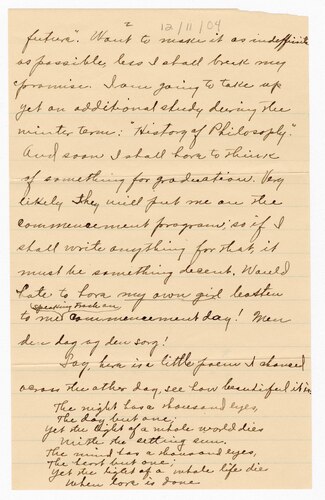 2
12/11/04
future". Want to make it as indefinite
as possible, less I shall break my
promise. I am going to take up
yet an additional study during the
winter term: "History of Philosophy."
And soon I shall have to think
of something for graduation. Very
likely they will put me on the
commencement program, so if I
shall write anything for that, it
must be something decent. Would
hate to have my own girl listen
speaking Track on
to me commencement day! Men
den dag og den sorg!
Say, here is a little poem I chanced
across the other day, see how beautiful it is:
The night has a thousand eyes,
The day but one;
Yet the light of a whole world dies
With the setting sun.
The mind has a thousand eyes,
The heart but one;
Yet the light of a whole life dies
When love is done